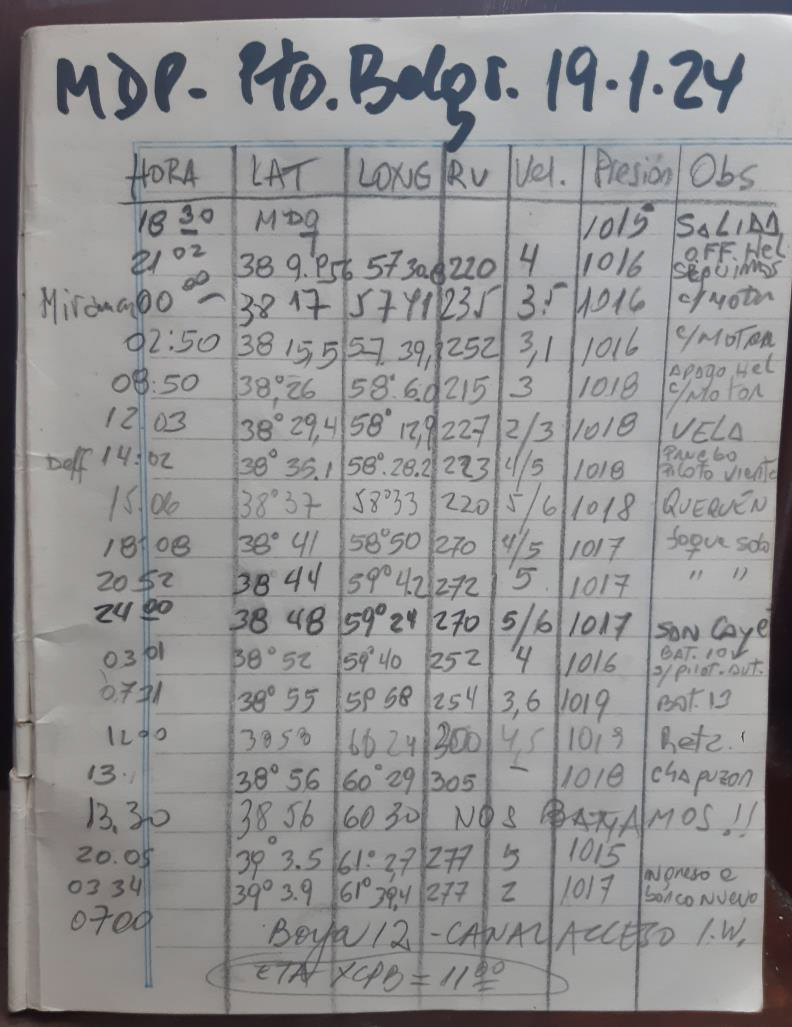 MDP - Pto. Belgr. 19.1.24
HORA LAT LONG RV Vel. Presión Obs
18 30 MDQ 1015 SALIDA
21 02 38 9. 57 30,8 220 4 1016 OFF. Hel SEGUIMOS
Miramar 00 00 38 17 57 41 235 3.5 1016 c/Motor
02:50 38 15,5 57. 39,1 252 3,1 1016 c/MOTOR
08:50 38°26 58° 6.0 215 3 1018 APAGO Hel c/Motor
12 03 38° 29,4 58° 12,9 227 2/3 1018 VELA
Deff 14:02 38° 35.1 58°.28.2 223 4/5 1018 PRUEBO PILOTO viento
15.06 38°37 58°33 220 5/6 1018 QUEQUÉN
18:08 38° 41 58°50 270 4/5 1017 foque solo
20 52 38 44 59°4.2 272 5 1017 " "
24 00 38 48 59°24 270 5/6 1017 SAN Cayé
03 01 38°52 59°40 252 4 1016 BAT. 10V s/pilot. aut.
07.31 38° 55 59 58 254 3,6 1019 Bat. 13
12 00 38 58 60 24 300 4,5 1019 Retz.
13. 38° 56 60°29 305 - 1018 chapuzon
13.30 38 56 60 30 NOS BAÑAMOS!!
20.05 39° 3.5 61° 27 277 5 1015
03 34 39° 3.9 61° 39,4 277 2 1017 ingreso a banco nuevo
0700 Boya 12 - CANAL ACCESO I.W.
ETA XCPB = 11 00